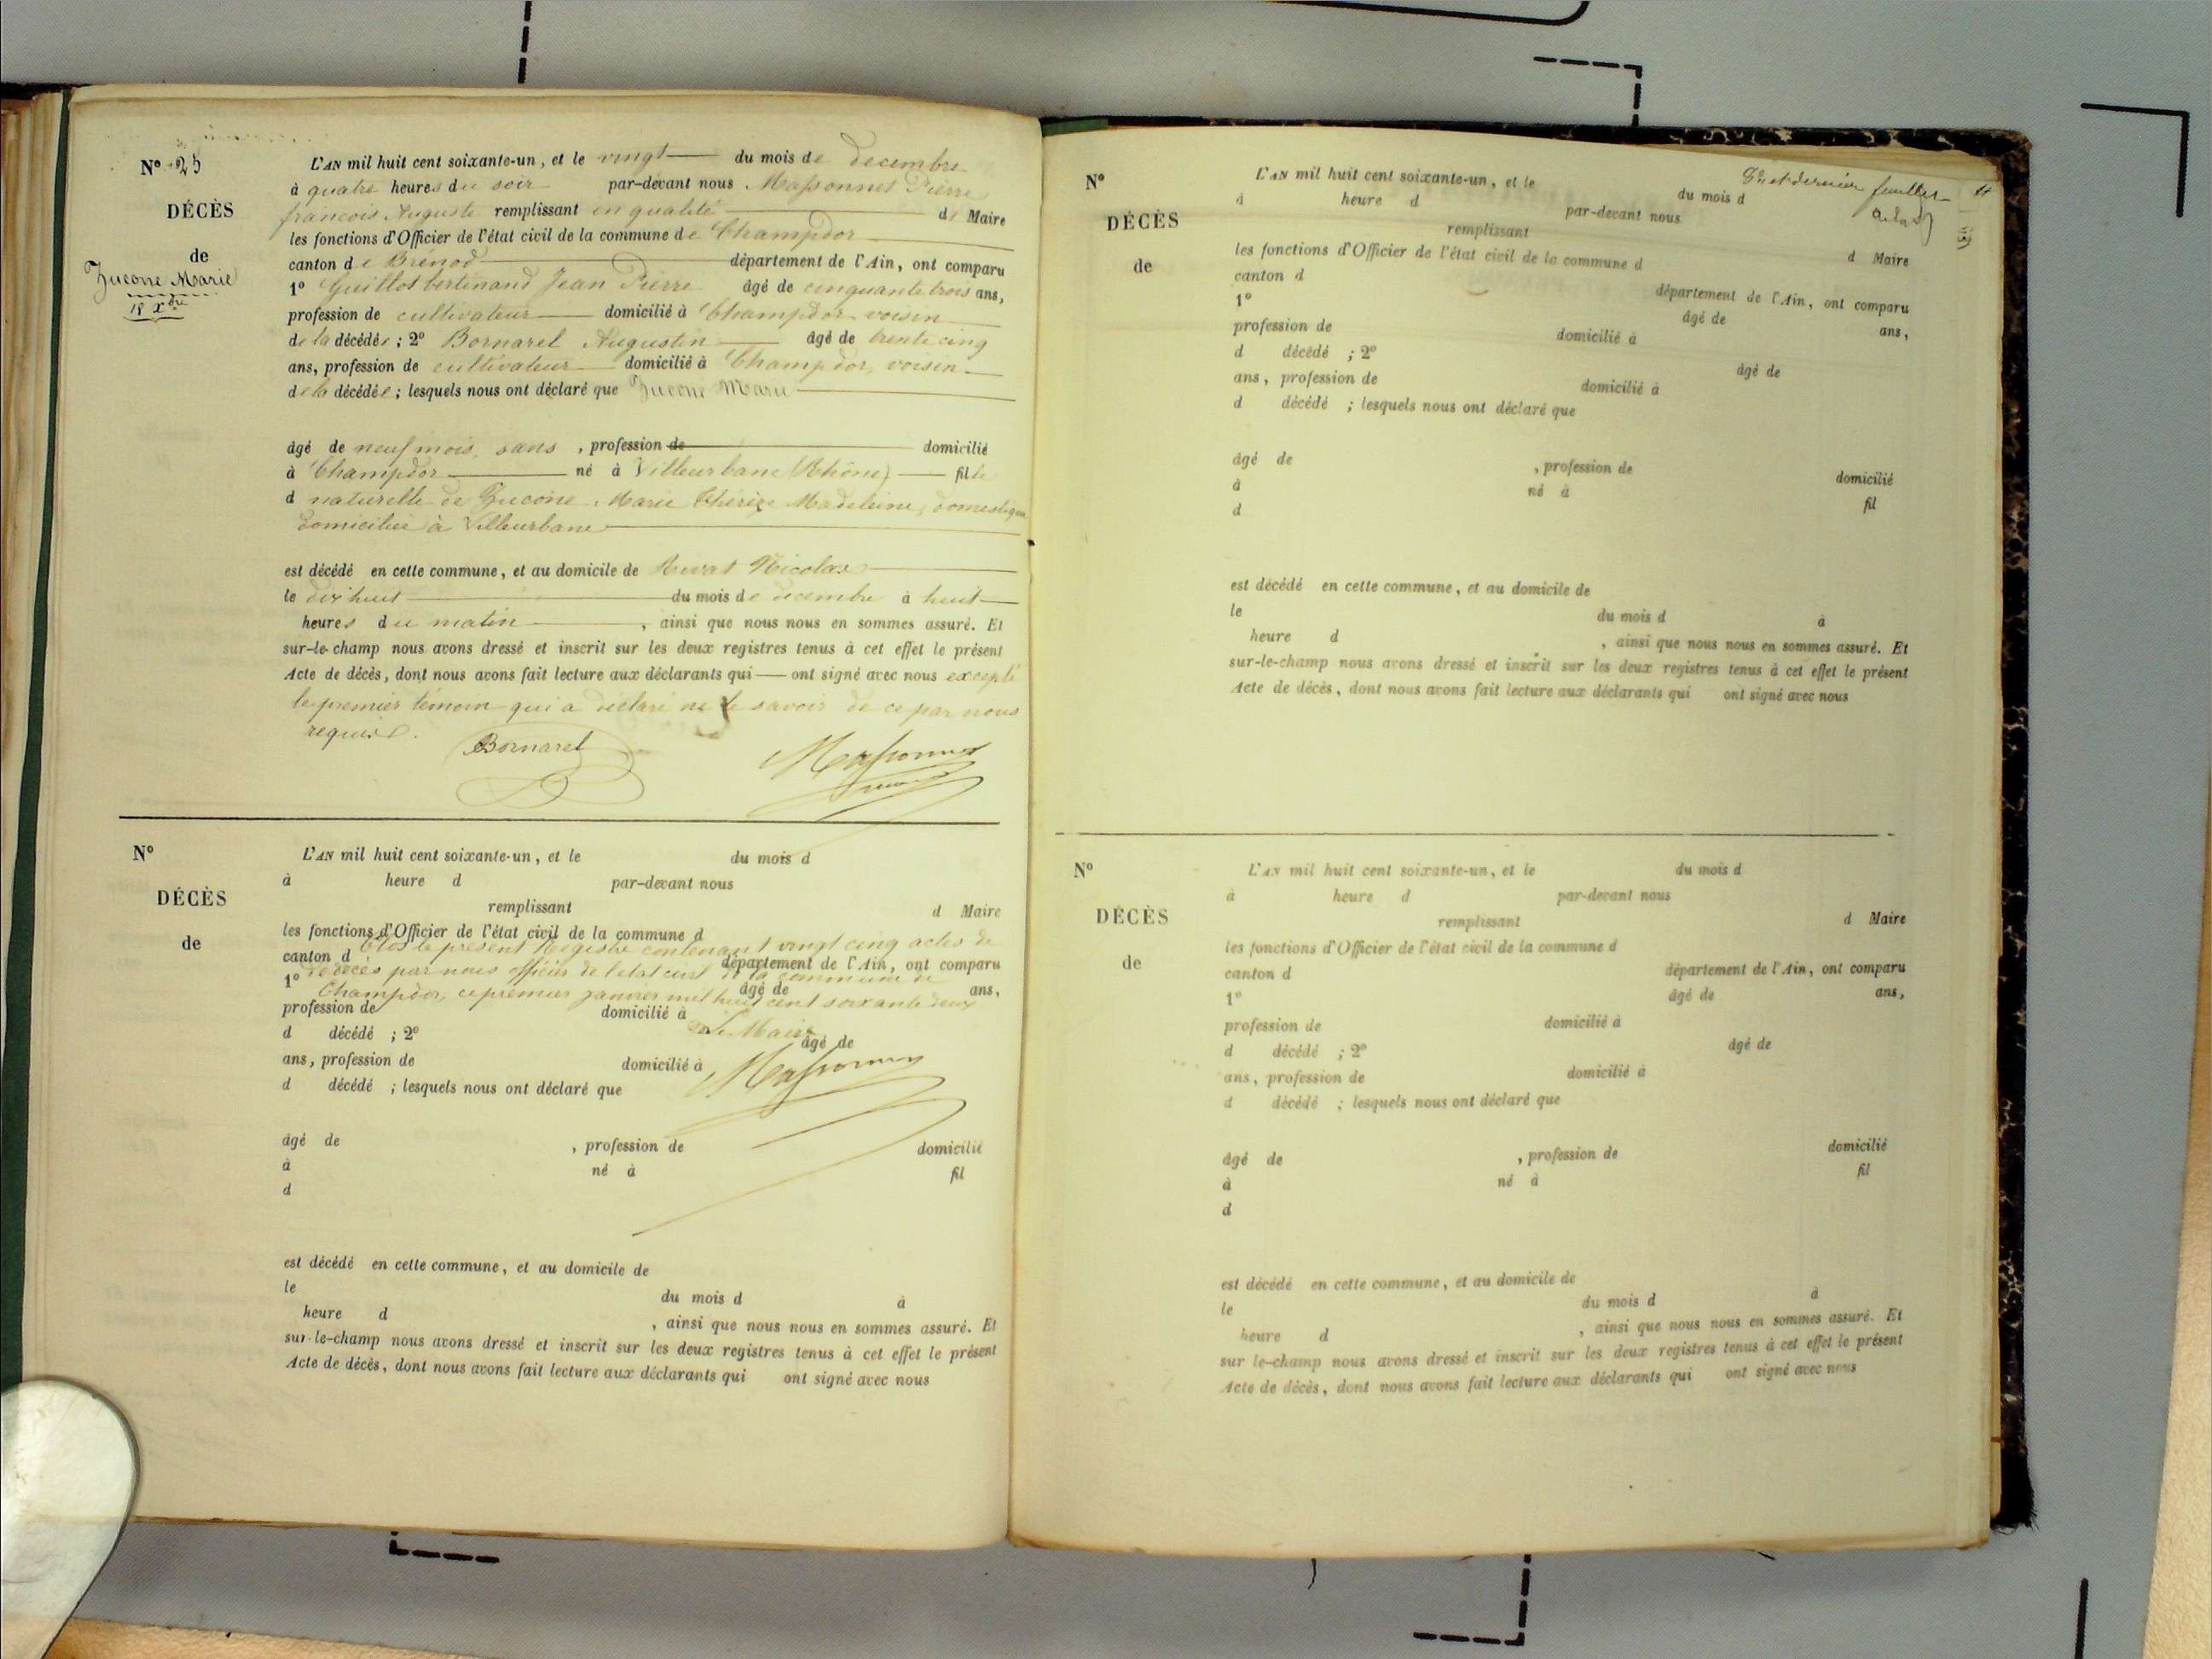 N° 25
DÉCÈS
de
Zucone Marie
18 Xbre
L'AN mil huit cent soixante-un, et le vingt du mois de decembre
à quatre heures du soir par-devant nous Massonnet Pierre
francois Auguste remplissant en qualité de Maire
les fonctions d'Officier de l'état civil de la commune de Champdor
canton de Brénod département de l'Ain, ont comparu
1° Guillot bertinand Jean Pierre âgé de cinquante trois ans,
profession de cultivateur domicilié à Champdor voisin
de la décédée ; 2° Bornarel Augustin âgé de trente cinq
ans, profession de cultivateur domicilié à Champdor, voisin
de la décédée ; lesquels nous ont déclaré que Zucone Marie
âgé de neuf mois, sans , profession de domicilié
à Champdor né à Villeurbane (Rhône) fille
d naturelle de Zucone Marie Thérèze Madeleine, domestique
domiciliée à Villeurbane
est décédé en cette commune, et au domicile de Nicolas
le dix huit du mois de decembre à huit
heures du matin , ainsi que nous nous en sommes assuré. Et
sur-le-champ nous avons dressé et inscrit sur les deux registres tenus à cet effet le présent
Acte de décès, dont nous avons fait lecture aux déclarants qui ont signé avec nous excepté
le premier témoin qui a déclaré ne le savoir de ce par nous
requis.
Bornarel Massonnet
N°
DÉCÈS
de
L'AN mil huit cent soixante-un, et le du mois d
à heure d par-devant nous
remplissant d Maire
les fonctions d'Officier de l'état civil de la commune d
Clos le présent Registre contenant vingt cinq actes de
canton d département de l'Ain, ont comparu
de décès par nous officier de l'etat civil de la commune de
1° âgé de ans,
Champdor, ce premier janvier mil huit cent soixante deux
profession de domicilié à
Le Maire
d décédé ; 2° âgé de
ans, profession de domicilié à
Massonnet
d décédé ; lesquels nous ont déclaré que
âgé de , profession de domicilié
à né à fil
d
est décédé en cette commune, et au domicile de
le du mois d à
heure d , ainsi que nous nous en sommes assuré. Et
sur-le-champ nous avons dressé et inscrit sur les deux registres tenus à cet effet le présent
Acte de décès, dont nous avons fait lecture aux déclarants qui ont signé avec nous
et dernier feuillet
N°
DÉCÈS
de
L'AN mil huit cent soixante-un, et le du mois d
à heure d par-devant nous
remplissant d Maire
les fonctions d'Officier de l'état civil de la commune d
canton d département de l'Ain, ont comparu
1° âgé de ans,
profession de domicilié à
d décédé ; 2° âgé de
ans, profession de domicilié à
d décédé ; lesquels nous ont déclaré que
âgé de , profession de domicilié
à né à fil
d
est décédé en cette commune, et au domicile de
le du mois d à
heure d , ainsi que nous nous en sommes assuré. Et
sur-le-champ nous avons dressé et inscrit sur les deux registres tenus à cet effet le présent
Acte de décès, dont nous avons fait lecture aux déclarants qui ont signé avec nous
N°
DÉCÈS
de
L'AN mil huit cent soixante-un, et le du mois d
à heure d par-devant nous
remplissant d Maire
les fonctions d'Officier de l'état civil de la commune d
canton d département de l'Ain, ont comparu
1° âgé de ans,
profession de domicilié à
d décédé ; 2° âgé de
ans, profession de domicilié à
d décédé ; lesquels nous ont déclaré que
âgé de , profession de domicilié
à né à fil
d
est décédé en cette commune, et au domicile de
le du mois d à
heure d , ainsi que nous nous en sommes assuré. Et
sur le-champ nous avons dressé et inscrit sur les deux registres tenus à cet effet le présent
Acte de décès, dont nous avons fait lecture aux déclarants qui ont signé avec nous